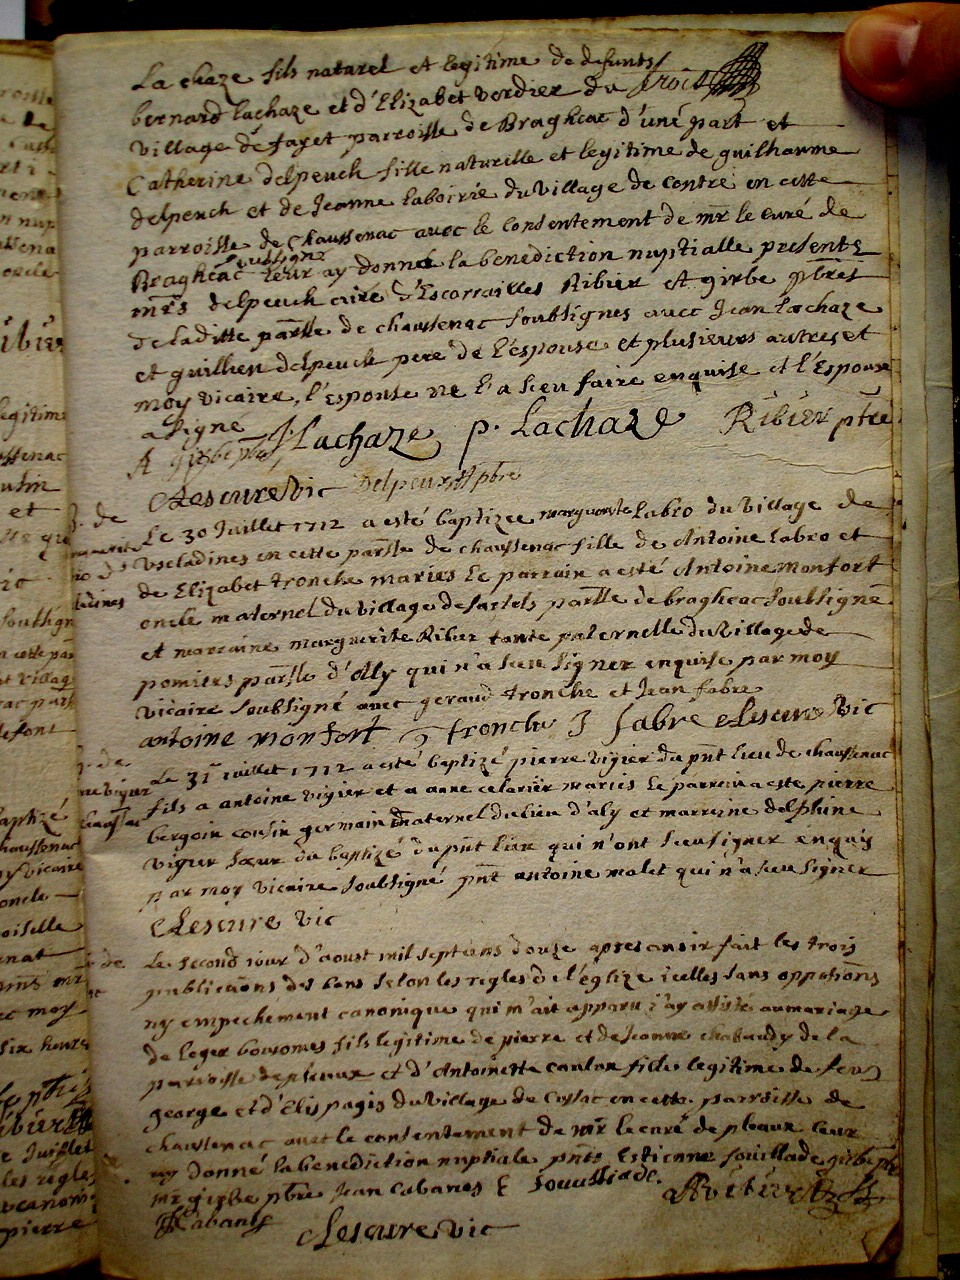 Lachaze fils naturel et legitime de defunts
bernard Lachaze et d'Elizabet verdier du
village de fayet parroisse de Bragheac d'une part et
Catherine delpeuch fille naturelle et legitime de guilhaume
delpeuch et de Jeanne laboirie du village de contre en cette
parroisse de chaussenac avec le consentement de mr le curé de
Bragheac soussigné leur ay donné la benediction nuptialle presents
mrs delpeuch curé d'Escorrailles Ribier et girbe pbres
de laditte parsse de chaussenac soubsignes avec Jean Lachaze
et guillien delpeuch pere de l'espouse et plusieurs autres et
moy vicaire, l'Espouse ne l'a sceu faire enquise et l'Espoux
a signé
J Lachaze p. Lachaze Ribier ptre
Lescure vic Delpeuch pbre
Le 30 Juillet 1712 a esté baptizee marguerite Labro du village de
Vseladines en cette parsse de chaussenac fille de Antoine Labro et
de Elizabet tronche maries Le parrain a esté Antoine monfort
oncle maternel du village de parsse de bragheac soubsigné
et marraine marguerite Ribier tante paternelle du village de
pomiers parsse d'Ally qui n'a sceu signer enquise par moy
vicaire soubsigné avec geraud tronche et Jean fabre
antoine monfort g tronche J fabre Lescure vic
Le 31 iuillet 1712 a esté baptizé pierre vigier du pnt lieu de chaussenac
fils a antoine vigier et a anne celarier maries Le parrain a este pierre
bergoin cousin germain maternel du lieu d'aly et marreine delphine
vigier sœur du baptizé du pnt lieu qui n'ont sceu signer enquis
par moy vicaire soubsigné pnt antoine malet qui n'a sceu signer
Lescure vic
Le second iour d'aoust mil sept cens douze apres avoir fait les trois
publications des bans selon les regles de l'églize icelles sans oppositions
ny empechement canonique qui m'ait apparu j'ay assisté au mariage
de leger bouromes fils legitime de pierre et de Jeanne chabaudy de la
parroisse de pleaux et d'Antoinette caulan fille legitime de feu
george et d'Elis pagis du village de Cussac en cette parroisse de
chaussenac avec le consentement de mr le curé de pleaux leur
ay donné la benediction nuptiale pnts Estienne souillade
mr girbe pbre Jean Cabanes E Souulhade.
J Cabanes
Lescure vic